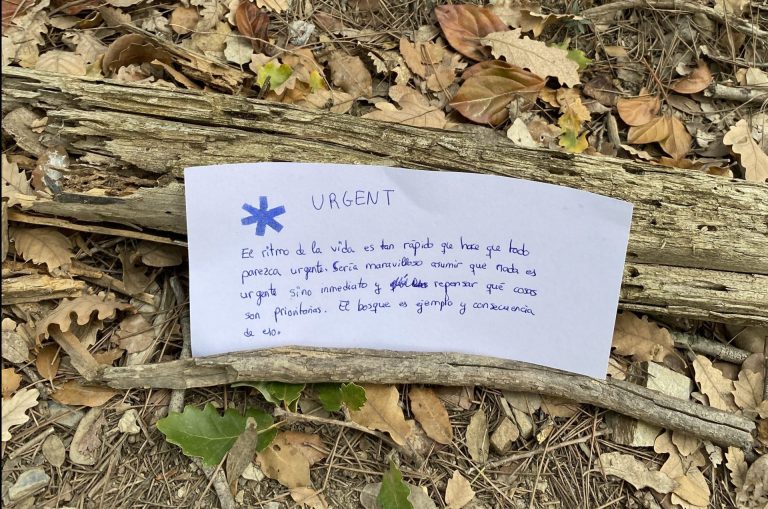 URGENT
El ritmo de la vida es tan rápido que hace que todo
parezca urgente. Sería maravilloso asumir que nada es
urgente sino inmediato y repensar qué cosas
son prioritarias. El bosque es ejemplo y consecuencia
de eso.